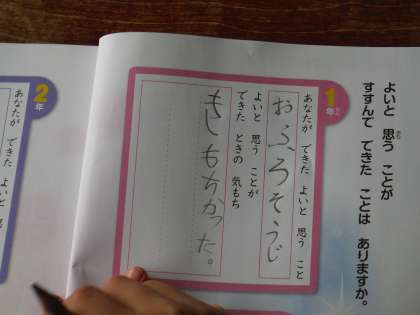 よいと 思う ことが
すすんで できた ことは ありますか。
1年
あなたが できた よいと 思う こと
おふろそうじ
よいと 思う ことが
できた ときの 気もち
きもちかった。
2年
あなたが できた よいと